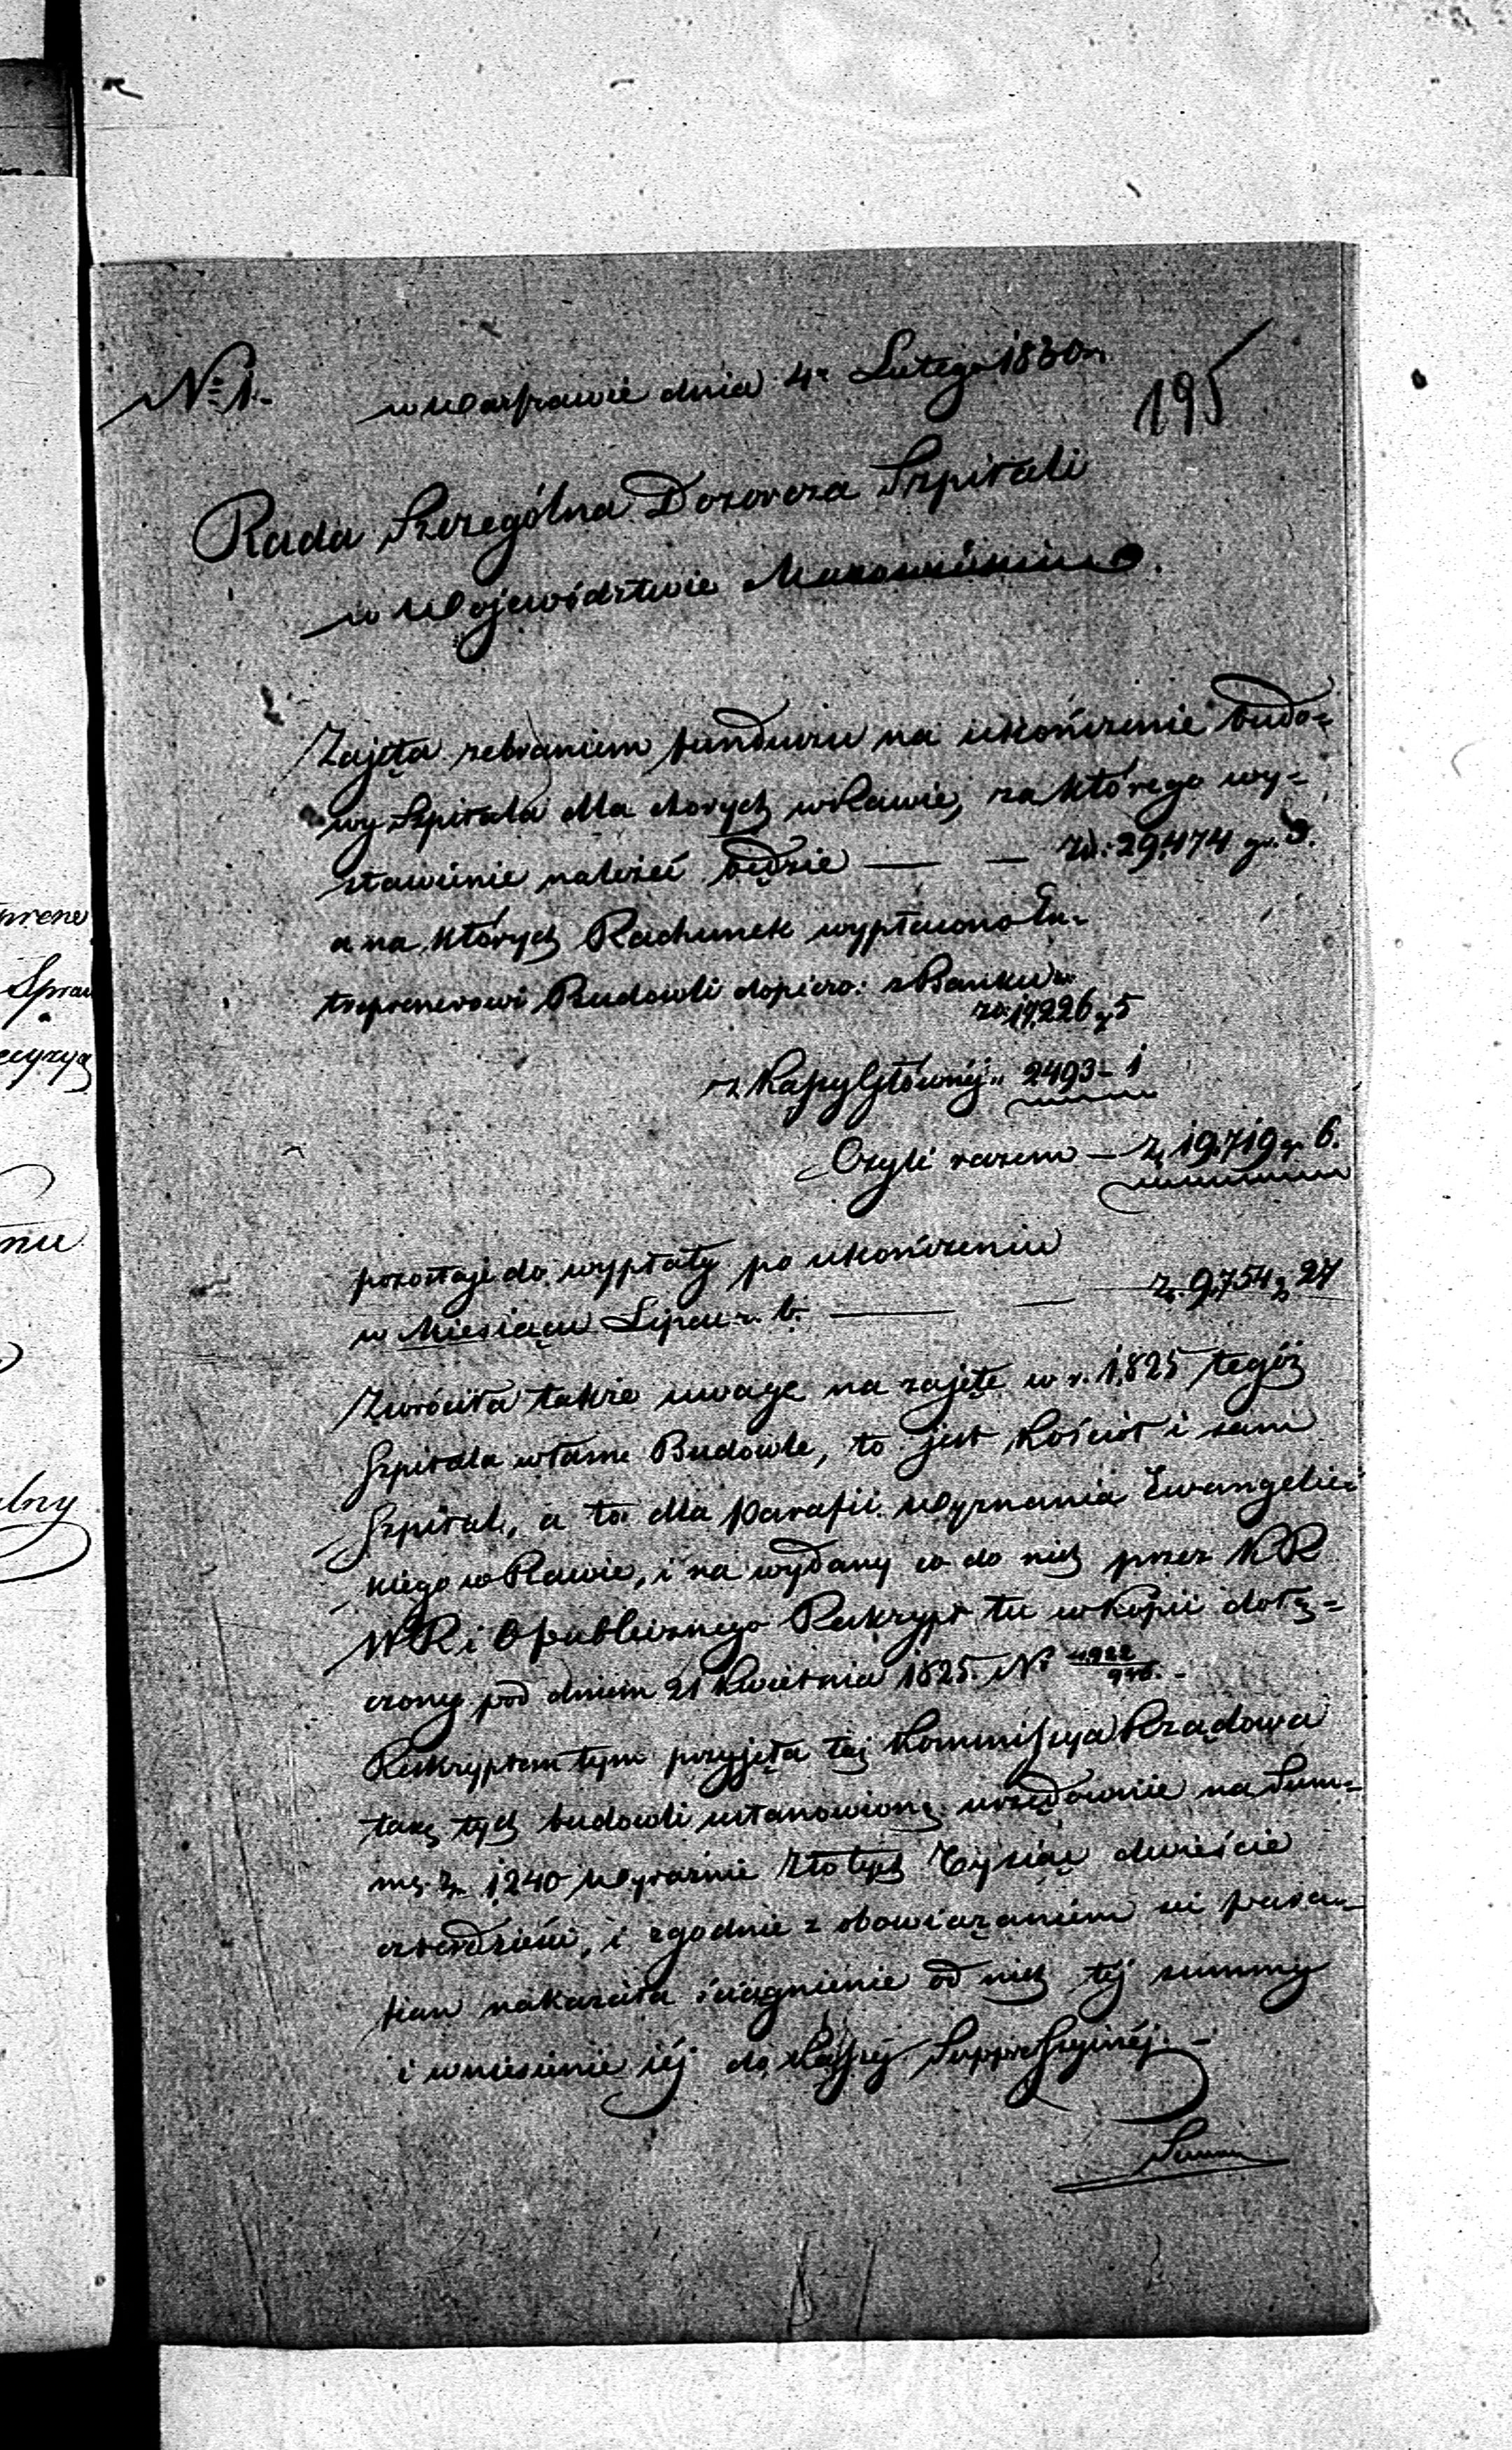 N: 1.
w Warszawie dnia 4o Lutego 1830 r.
195
Rada Szczególna Dozorcza Szpitali
w Województwie Mazowieckiem.
Zajęta zebraniem funduszu na ukończenie budo=
wy Szpitala dla chorych w Rawie, za którego wy=
stawienie należeć będzie — — Zł: 29,474 gr. 3.
a na których Rachunek wypłacono En=
treprenerowi Budowli dopiero: z Banku
zł: 17,226 g 5
z Kassy Głównéj „ 2493 - 1
Czyli razem — Zł 19,719 gr 6.
pozostaje do wypłaty po ukończeniu
w Miesiącu Lipcu r. b. — — Zł. 9,754 g 27
Zwróciła także uwagę na zajęte w r. 1825 tegóż
Szpitala własne Budowle, to jest Kościół i sam
Szpital, a to dla Parafii Wyznania Ewangelic=
kiego w Rawie, i na wydany co do nich przez KR
WR i Opublicznego Reskrypt tu w kopii dołą=
czony pod dniem 21 Kwietnia 1825. N:
Reskryptem tym przyjęła taż Kommissya Rządowa
taxę tych budowli ustanowioną urzędownie na Sum=
mę Zł. 1240 Wyraźnie Złotych Tysiąc dwieście
czterdzieści, i zgodnie z obowiązaniem się para=
fian nakazała ściągnienie od nich téj summy
i wniesienie iéj do Kassy Suppressyinéj. —